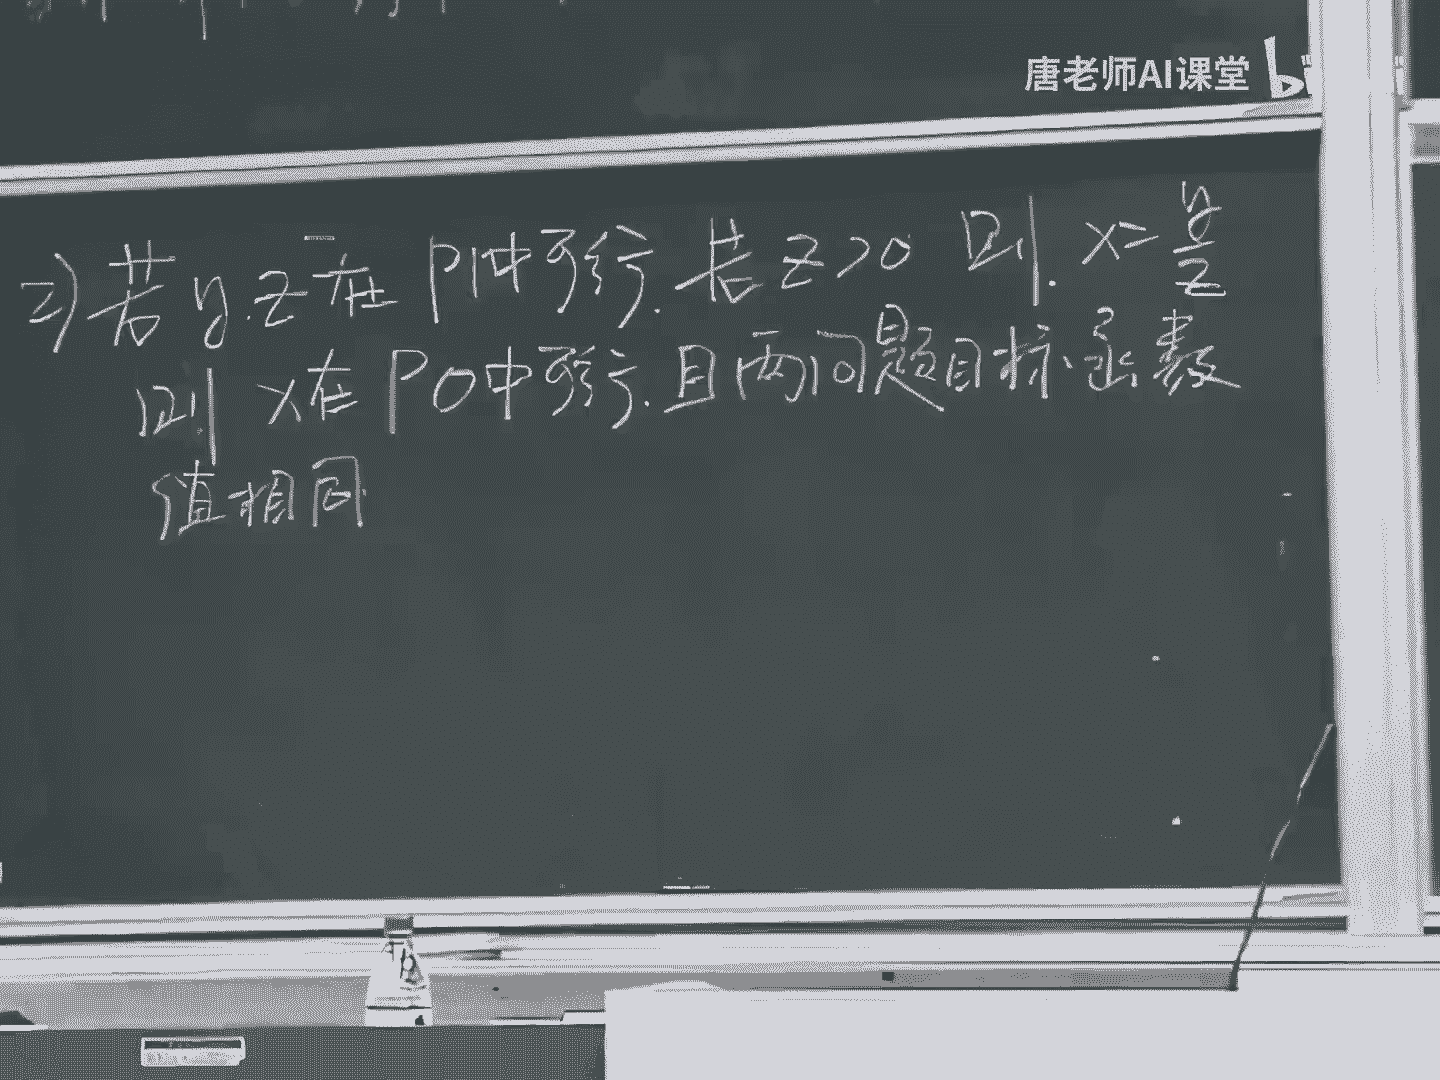 唐老师AI课堂 bi
2) 若 y.z 在 P1中可行. 若 z>0 则. x=y/z
则 x在 P0中可行. 且两问题目标函数
值相同